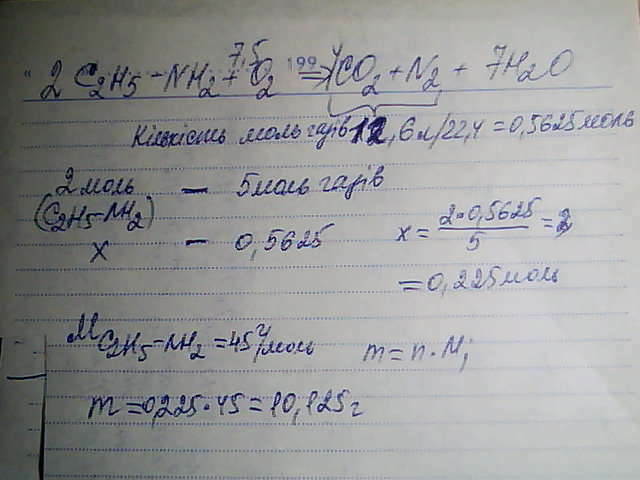 2 C₂H₅ - NH₂ + 7,5 O₂ => 4CO₂ + N₂ + 7H₂O
Кількість моль газів 12,6л/22,4 = 0,5625моль
2 моль — 5моль газів
(C₂H₅-NH₂)
x — 0,5625 x = 2·0,5625/5 =
= 0,225моль
M C₂H₅-NH₂ = 45 г/моль m = n·M;
m = 0,225·45 = 10,125г